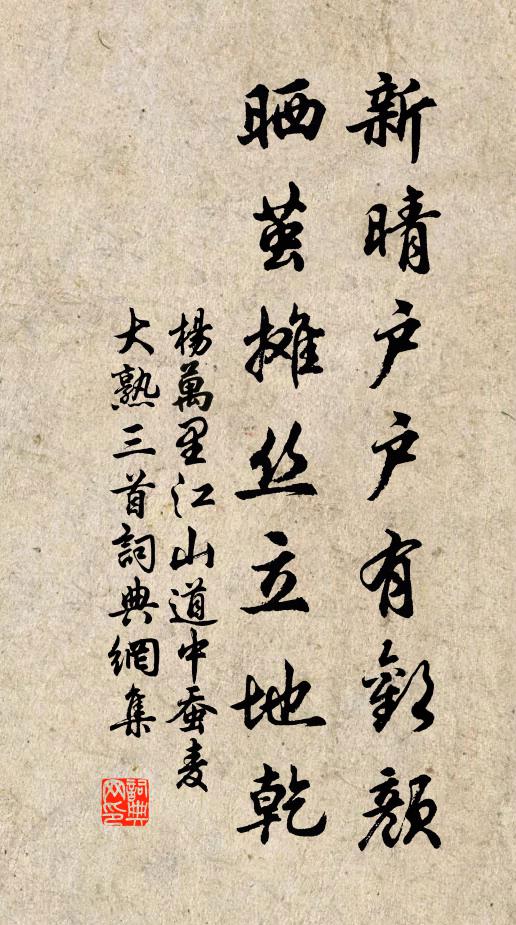 新晴户户有歡颜
晒茧摊丝立地乾
楊萬里江山道中蚕麦
大熟三首詞典網集
詞典
网印